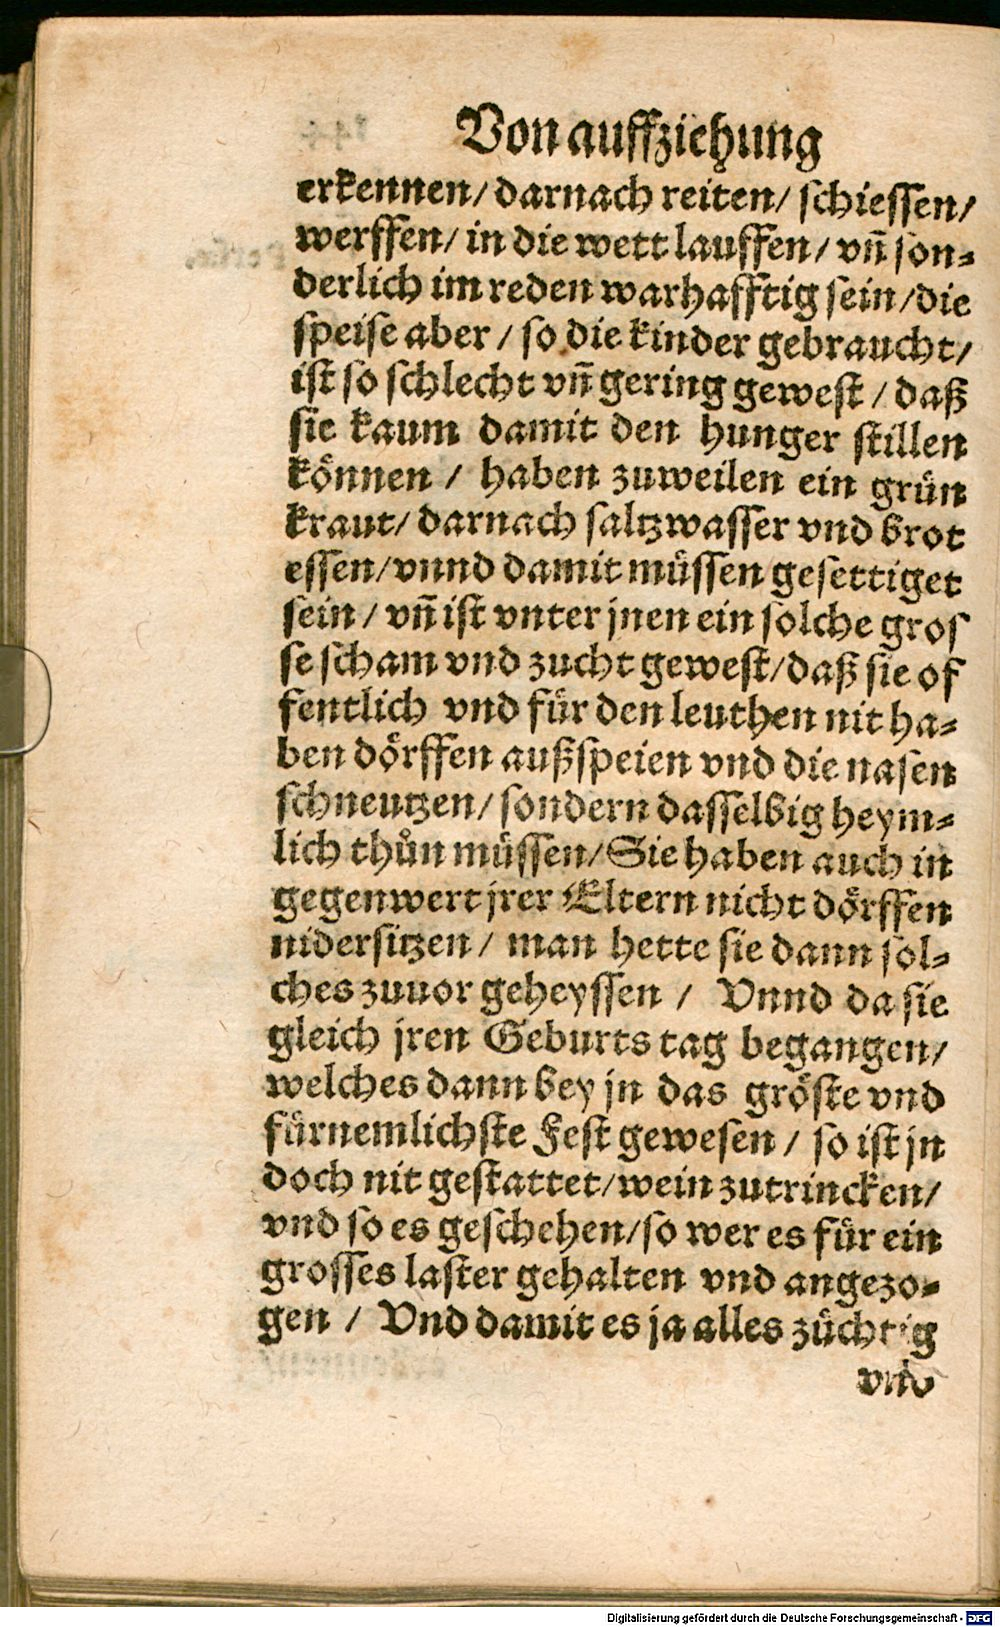 Von auffziehung
erkennen/ darnach reiten/ schiessen/
werffen/ in die wett lauffen/ vñ son-
derlich im reden warhafftig sein/die
speise aber / so die kinder gebraucht/
ist so schlecht vñ gering gewest / daß
sie kaum damit den hunger stillen
können / haben zuweilen ein grün
kraut/ darnach saltzwasser vnd brot
essen/vnnd damit müssen gesettiget
sein / vñ ist vnter jnen ein solche gros
se scham vnd zucht gewest/daß sie of
fentlich vnd für den leuthen nit ha-
ben dörffen außspeien vnd die nasen
schneutzen/ sondern dasselbig heym-
lich thůn müssen/Sie haben auch in
gegenwert jrer Eltern nicht dörffen
nidersitzen / man hette sie dann sol-
ches zuuor geheyssen / Vnnd da sie
gleich jren Geburts tag begangen/
welches dann bey jn das gröste vnd
fürnemlichste Fest gewesen / so ist jn
doch nit gestattet/wein zutrincken/
vnd so es geschehen/so wer es für ein
grosses laster gehalten vnd angezo-
gen / Vnd damit es ja alles züchtig
vnd
Digitalisierung gefördert durch die Deutsche Forschungsgemeinschaft - DFG